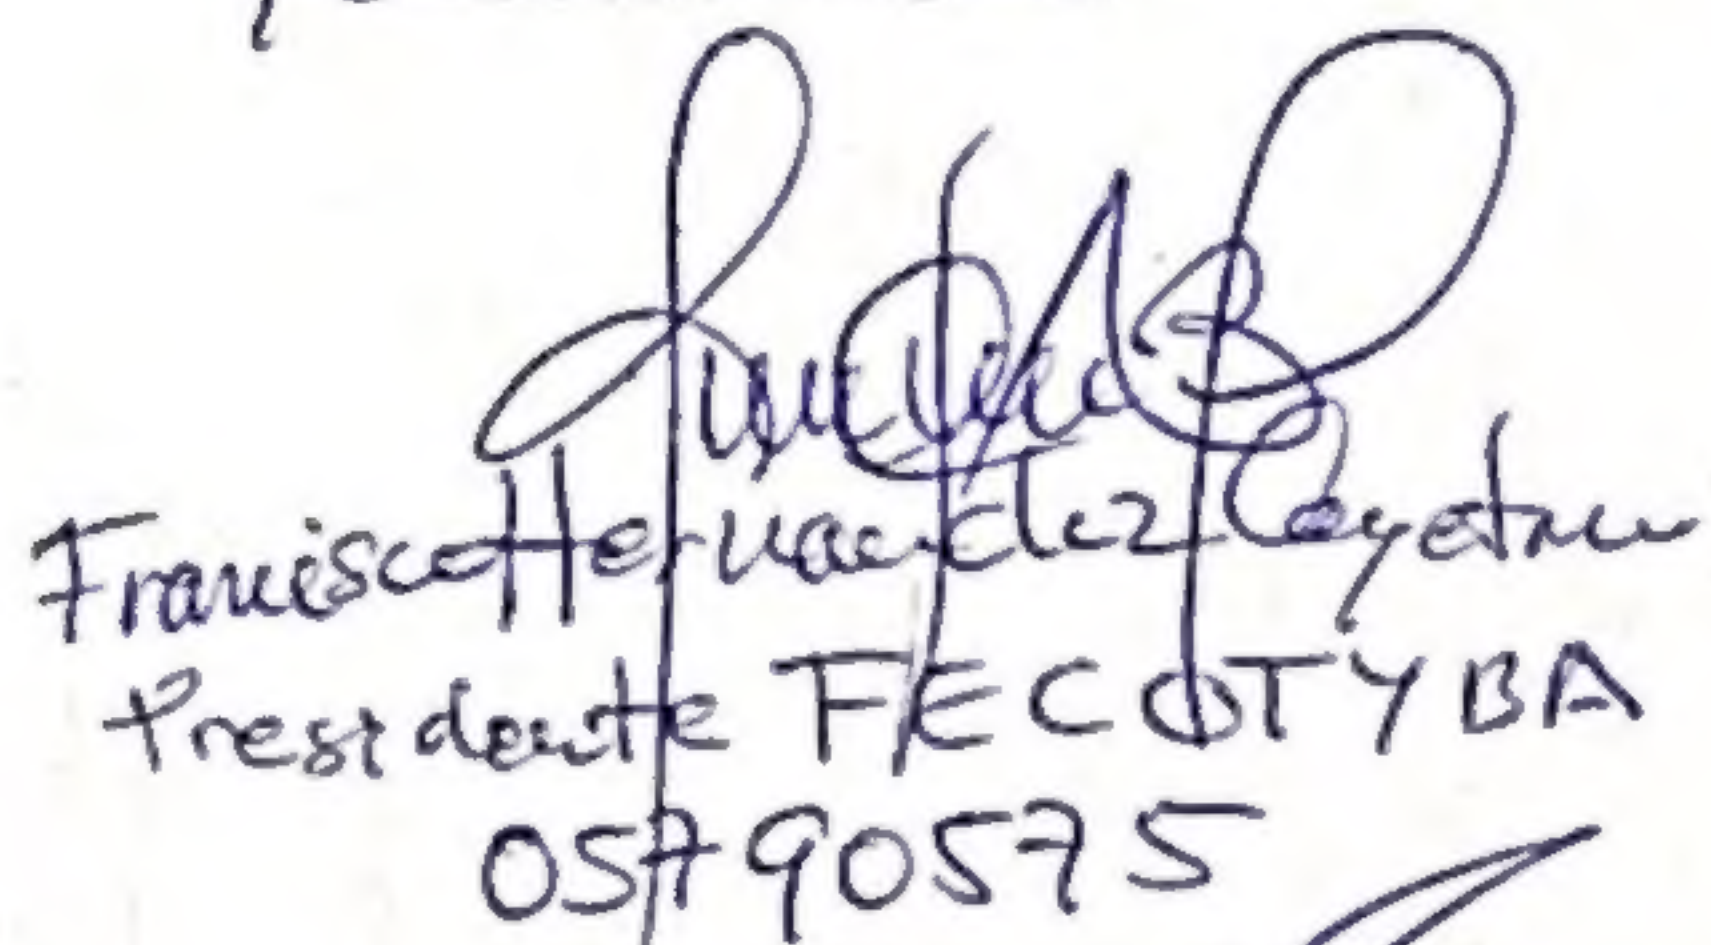 Francisco Hernandez Cayetano
Presidente FECOTYBA
05790575